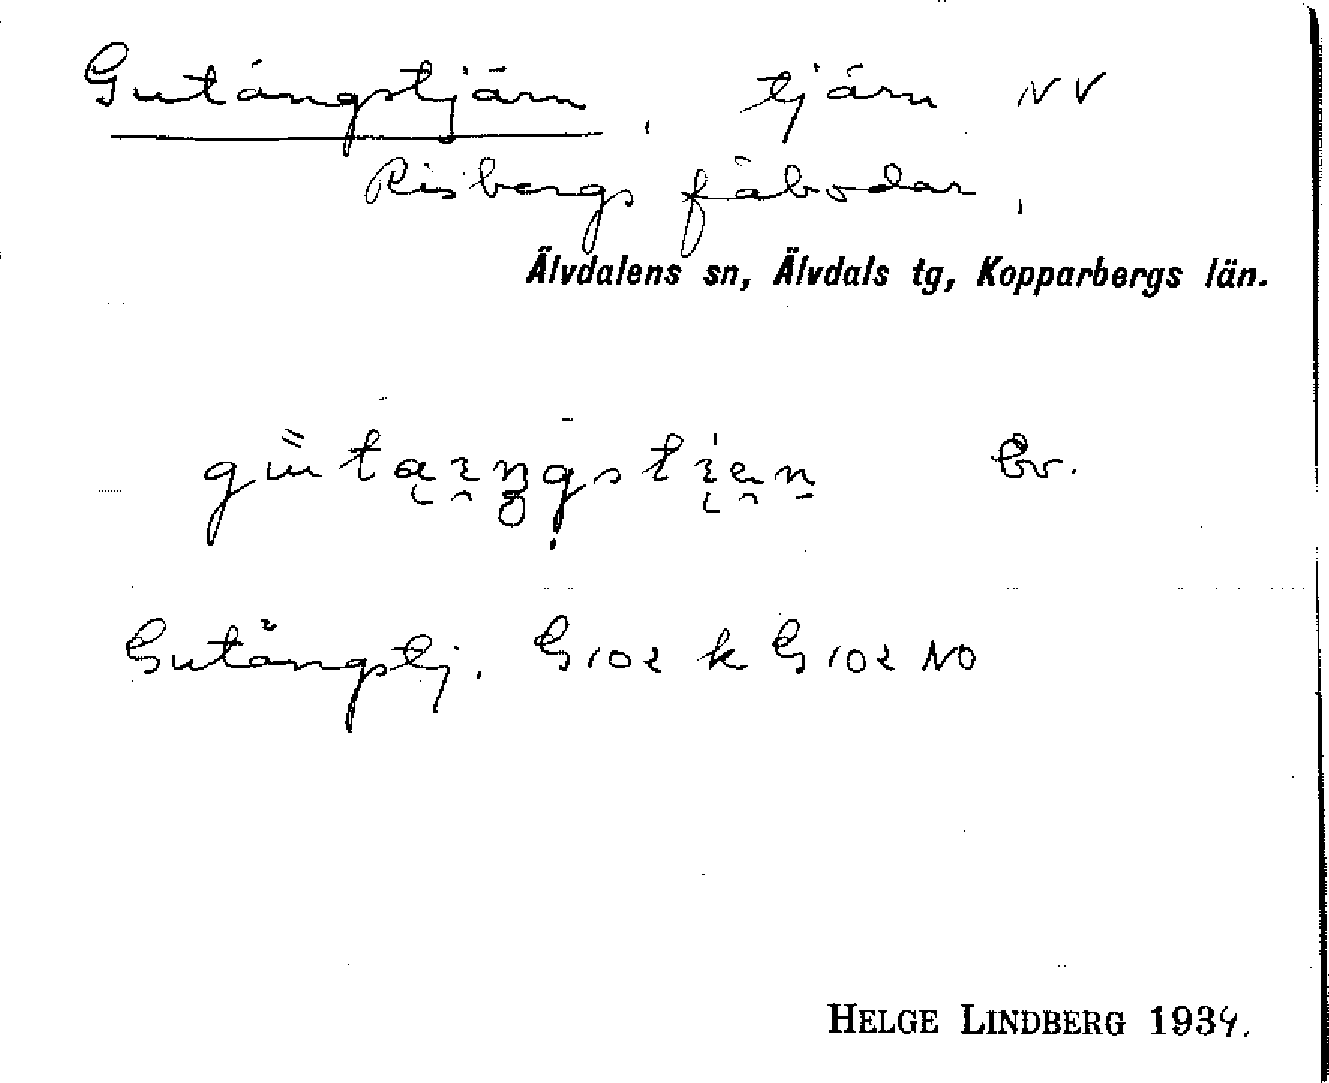 Gutängstjärn, tjärn NV
Risbergs fäbodar,
Älvdalens sn, Älvdals tg, Kopparbergs län.
Bv.
Gutängstj. G102 k G102 NO
HELGE LINDBERG 1934.